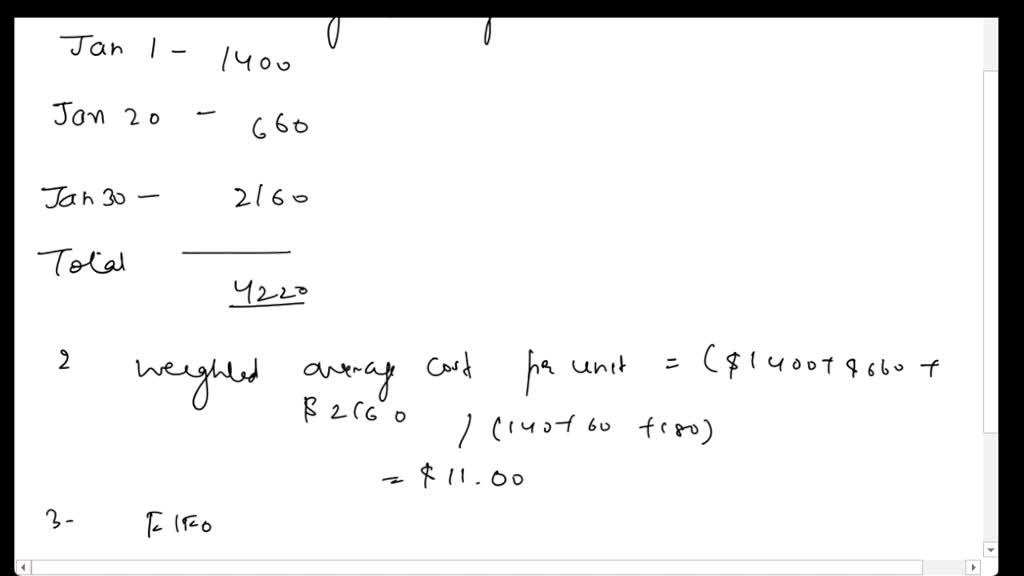 Jan 1 - 1400
Jan 20 - 660
Jan 30 - 2160
Total
4220
2 weighted average cost per unit = ($1400 + $660 +
$2160 / (140 + 60 + 180)
= $11.00
3- FIFO